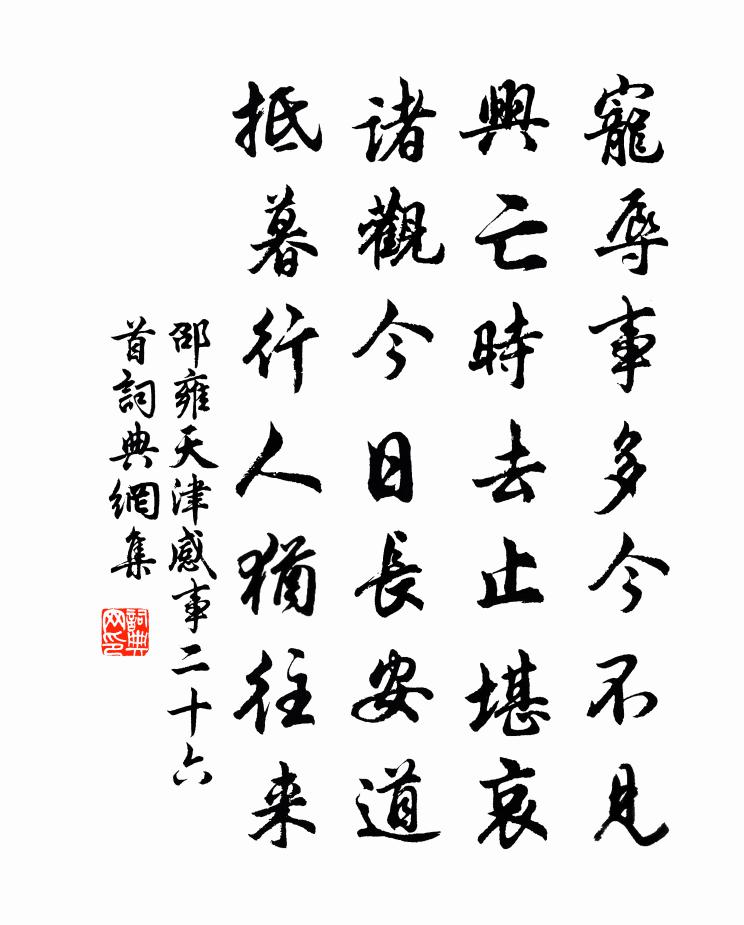 寵辱事多今不見
興亡時去止堪哀
諸觀今日長安道
抵暮行人猶往来
邵雍天津感事二十六
首詞典網集
詞典網印